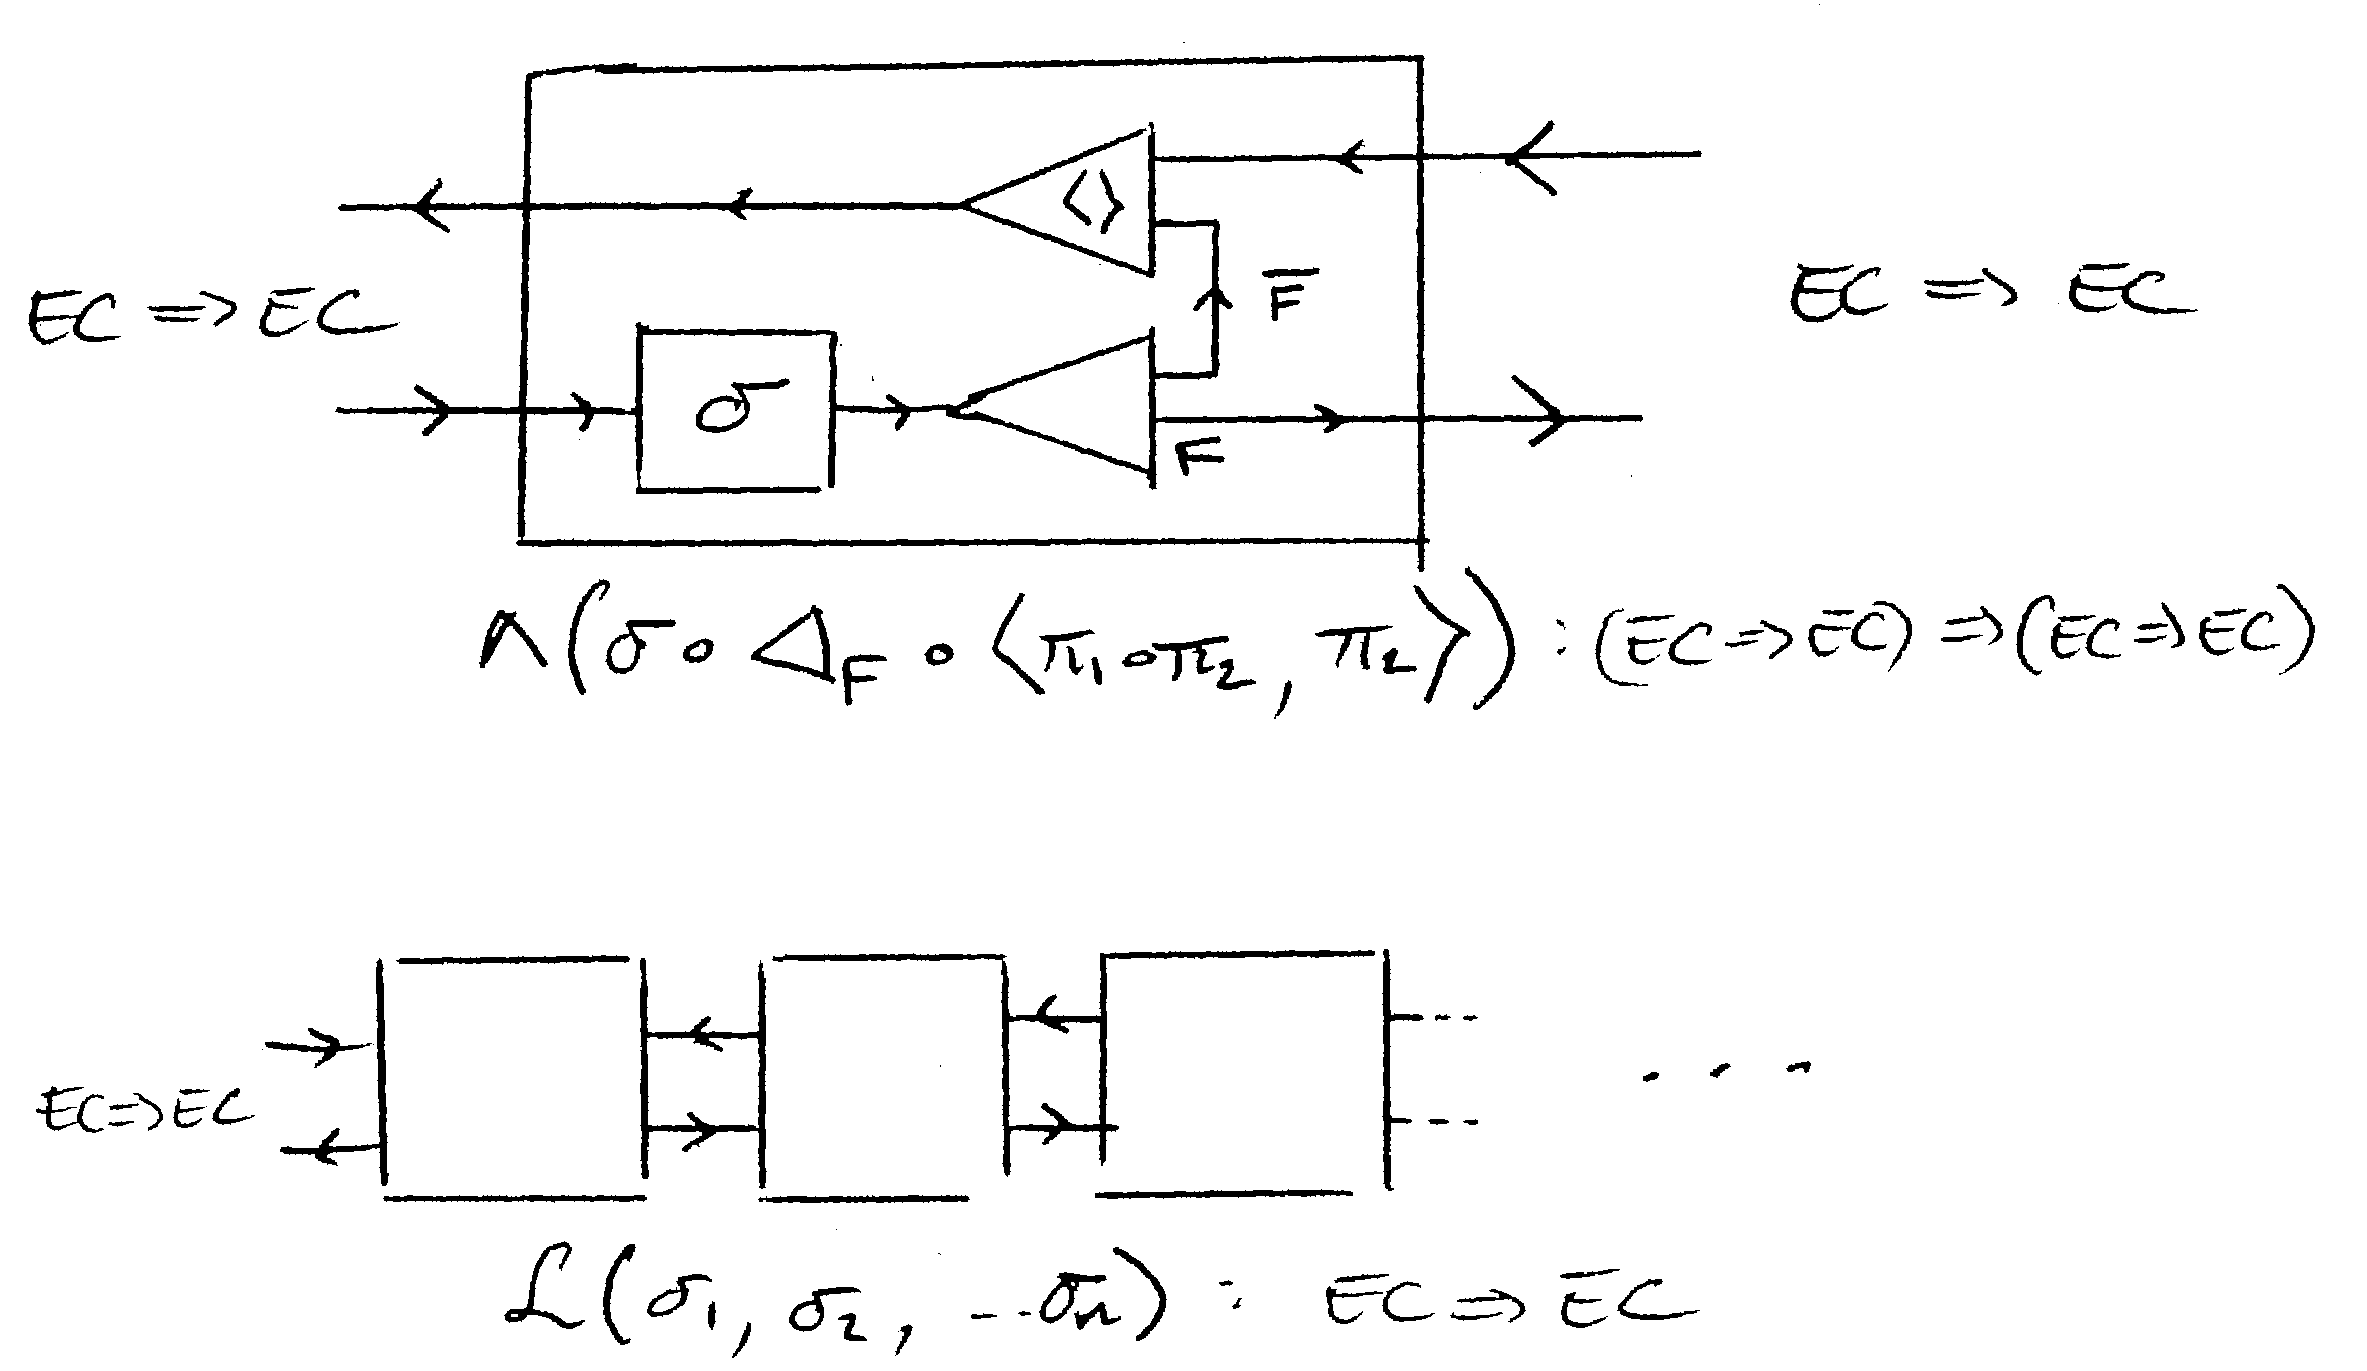 ⟨⟩
F̄
EC ⇒ EC
EC ⇒ EC
σ
F
Λ(σ∘Δ_F∘⟨π₁∘π₂, π₂⟩) : (EC⇒EC)⇒(EC⇒EC)
EC⇒EC
ℒ(σ₁, σ₂, ...σₙ) : EC⇒EC